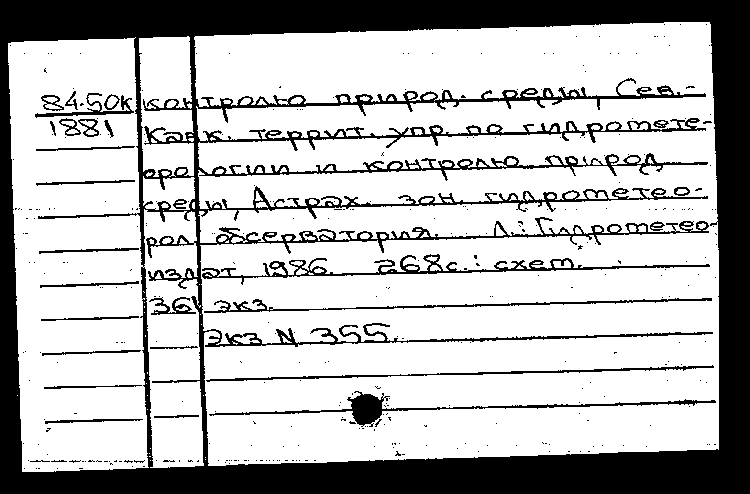 84.50к контролю природ. среды, Сев.-
1881 Кавк. террит. упр. по гидромете-
орологии и контролю природ
среды, Астрах. зон. гидрометео-
рол. обсерватория. Л.: Гидрометео-
издат, 1986. 268с.: схем.
361 экз.
Экз N 355.